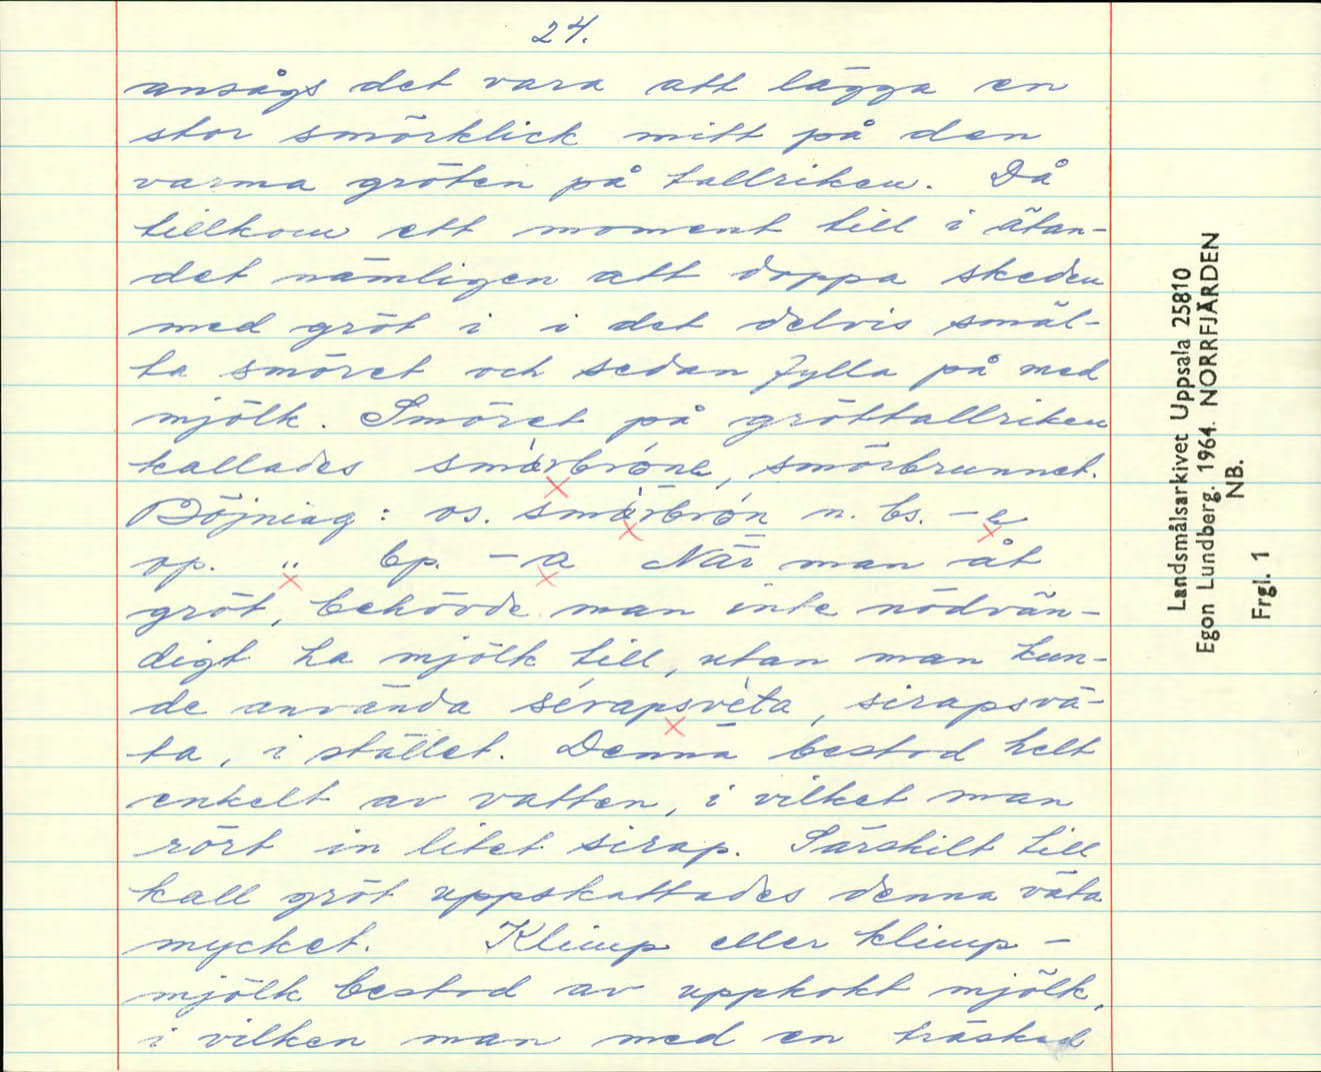 24.
ansågs det vara att lägga en
stor smörklick mitt på den
varma gröten på tallriken. Då
tillkom ett moment till i ätan-
det nämligen att doppa skeden
med gröt i i det delvis smäl-
ta smöret och sedan fylla på med
mjölk. Smöret på gröttallriken
kallades smörbrone, smörbrunnet.
Böjning: os. smörbrón n. bs. -e
op. " bp. -a När man åt
gröt, behövde man inte nödvän-
digt ha mjölk till, utan man kun-
de använda sérapsvèta, sirapsvä-
ta, i stället. Denna bestod helt
enkelt av vatten, i vilket man
rört in litet sirap. Särskilt till
kall gröt uppskattades denna väta
mycket. Klimp eller klimp-
mjölk bestod av uppkokt mjölk,
i vilken man med en träsked
Landsmålsarkivet Uppsala 25810
Egon Lundberg. 1964. NORRFJÄRDEN
NB.
Frgl. 1